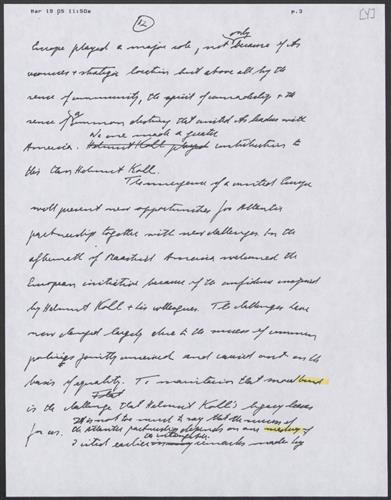 Mar 19 05 11:50a p.3
(12) [Y]
only
Europe played a major role, not because of its
resources + strategic location but above all by the
sense of community, the spirit of comradeship + the
sense of common destiny that united its leaders with
No one made a greater
America. Helmut Kohl played contribution to
this than Helmut Kohl.
The emergence of a united Europe
will present new opportunities for Atlantic
partnership together with new challenges. In the
aftermath of Maastricht America welcomed the
European initiative because of the confidence inspired
by Helmut Kohl + his colleagues. The challenges have
now changed largely due to the success of common
policies jointly conceived and carried out on the
basis of equality. To maintain that moral bond
is the challenge that Helmut Kohl's legacy leaves
for us. It is not too much to say that the success of
the Atlantic partnership depends on our mastery of
I cited earlier remarks made by